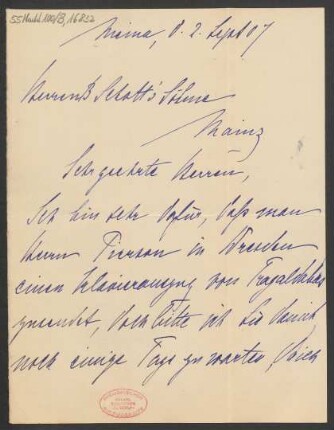 55 Nachl 100/B, 16852
d. 2. Sept 07
Herren B Schott's Söhne
Mainz
Sehr geehrte Herren,
Ich bin sehr dafür, daß man
Herrn Pierson in Dresden
einen Klavierauszug von Tragaldabas
zusendet, doch bitte ich Sie damit
noch einige Tage zu warten,